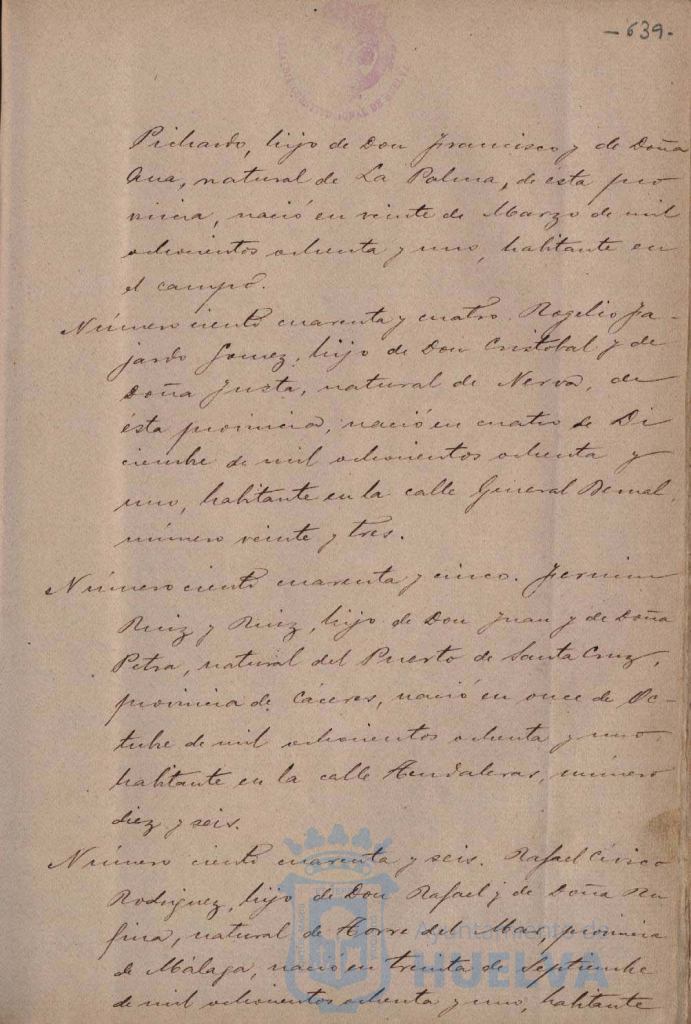 - 639 -
Pichardo, hijo de Don Francisco y de Doña
Ana, natural de La Palma, de esta pro
vincia, nació en veinte de Marzo de mil
ochocientos ochenta y uno, habitante en
el campo.
Número ciento cuarenta y cuatro. Rogelio Fa-
jardo Gomez, hijo de Don Cristobal y de
Doña Justa, natural de Nerva, de
ésta provincia, nació en cuatro de Di
ciembre de mil ochocientos ochenta y
uno, habitante en la calle General Bernal,
número veinte y tres.
Número ciento cuarenta y cinco. Fermin
Ruiz y Ruiz, hijo de Don Juan y de Doña
Petra, natural del Puerto de Santa Cruz,
provincia de Cáceres, nació en once de Oc-
tubre de mil ochocientos ochenta y uno,
habitante en la calle número
diez y seis.
Número ciento cuarenta y seis. Rafael Civico
Rodriguez, hijo de Don Rafael y de Doña Ru
fina, natural de Torre del Mar, provincia
de Málaga, nació en treinta de Septiembre
de mil ochocientos ochenta y uno, habitante
Ayuntamiento de
HUELVA